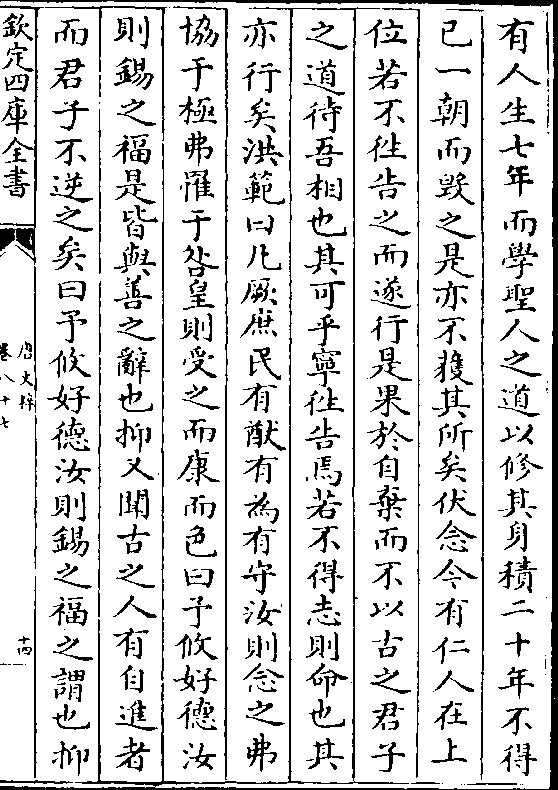 有人生七年而學聖人之道以修其身積二十年不得
已一朝而毀之是亦不獲其所矣伏念今有仁人在上
位若不徃告之而遂行是果於自棄而不以古之君子
之道待吾相也其可乎寧徃告焉若不得志則命也其
亦行矣洪範曰凡厥庶民有猷有為有守汝則念之弗
協于極弗罹于咎皇則受之而康而色曰予攸好德汝
則錫之福是皆與善之辭也抑又聞古之人有自進者
而君子不逆之矣曰予攸好德汝則錫之福之謂也抑
欽定四庫全書
唐文粹
卷八十七
十四